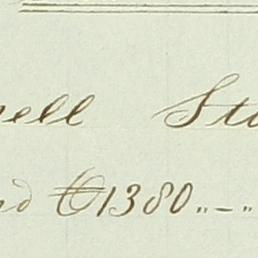 ell St
nd ₶1380..-..